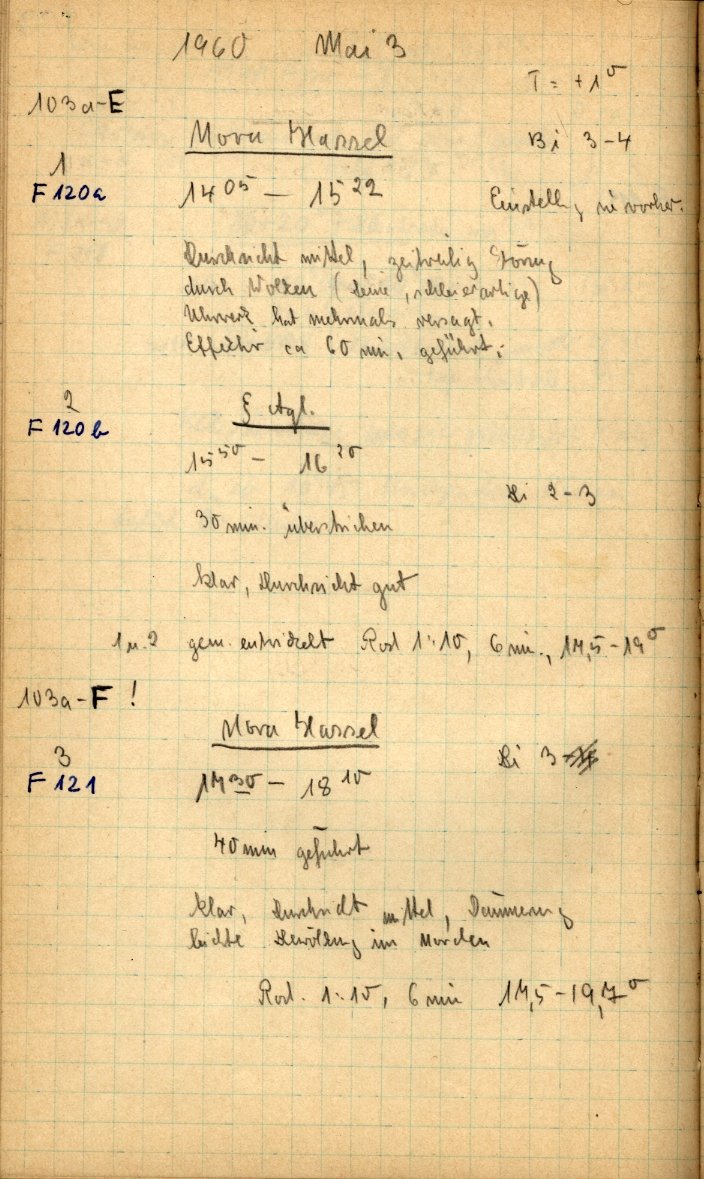 1960 Mai 3
T = +1°
103a-E
Nova Hassel
Bi 3-4
1
F 120a
14 05 — 15 22
Einstellg wie vorher.
Durchsicht mittel, zeitweilig Störung
durch Wolken (feine, schleierartige)
Uhrwerk hat mehrmals versagt.
Effektiv ca 60 min. geführt.
2
F 120b
ξ Aql.
15 50 — 16 20
Bi 2-3
30 min. überstrichen
klar, Durchsicht gut
1 u. 2 gem. entwickelt Rod 1:10, 6 min., 17,5-19°
103a-F !
Nova Hassel
3
F 121
Bi 3
17 30 — 18 10
40 min geführt
klar, Durchsicht mittel, Dämmerung
leichte Bewölkung im Norden
Rod. 1:10, 6 min 17,5-19,7°